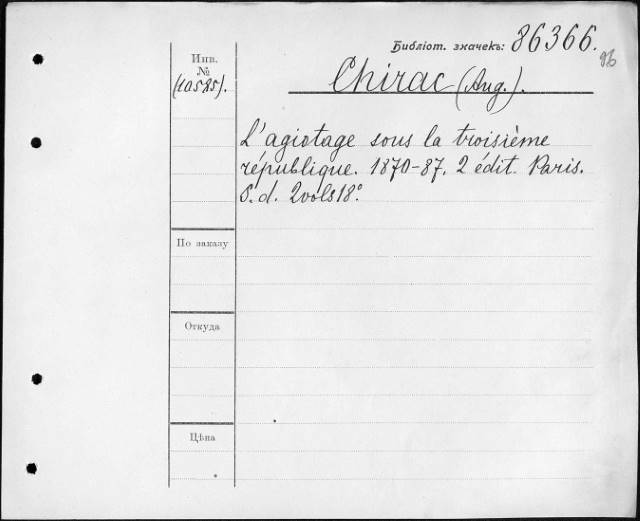 Библіот. значекъ: 86366.
96
Инв.
№
(10525).
Chirac (Aug.).
L'agiotage sous la troisième
république. 1870-87. 2 édit. Paris.
S. d. 2 vols 18°.
По заказу
Откуда
Цѣна